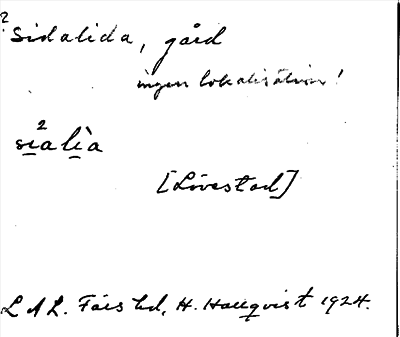 2
Sidalida, gård
ingen lokalisation!
2
sialìa
[Lövestad]
LAL. Färs hd, H. Hallqvist 1924.